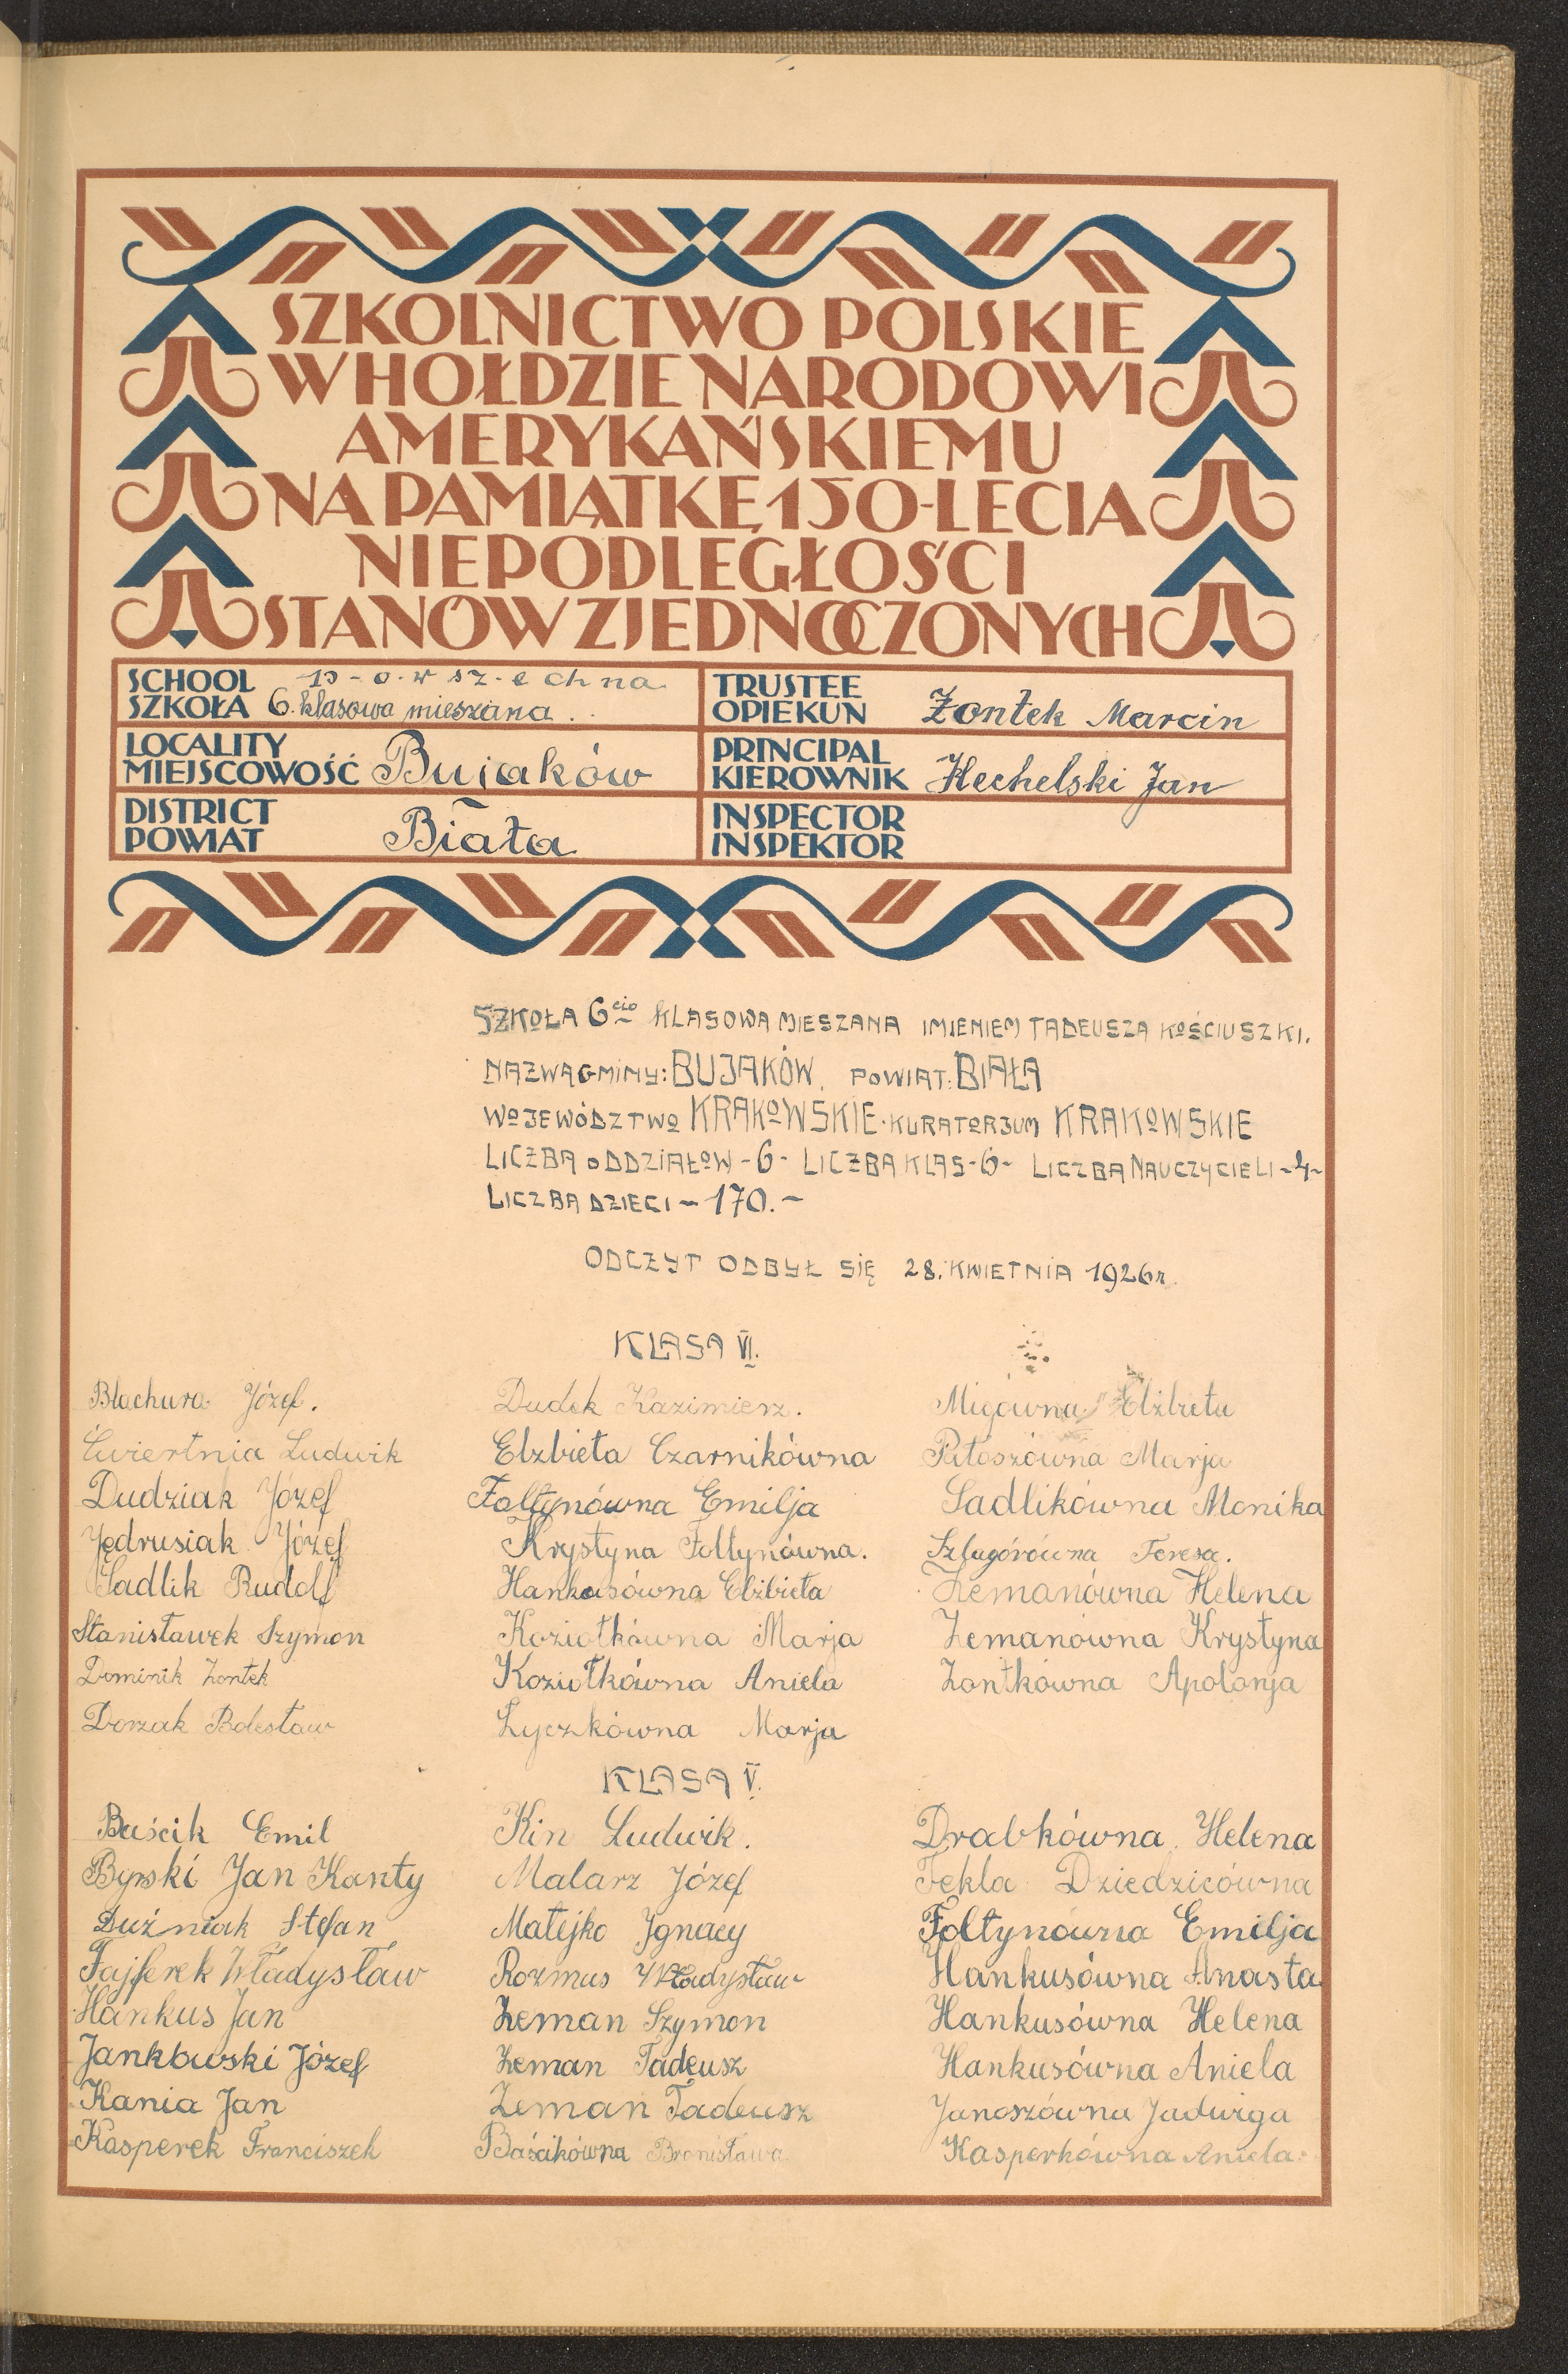 SZKOLNICTWO POLSKIE
W HOŁDZIE NARODOWI
AMERYKAŃSKIEMU
NA PAMIĄTKĘ 150-LECIA
NIEPODLEGŁOŚCI
STANÓW ZJEDNOCZONYCH
SCHOOL
SZKOŁA
p-o-w sz-e ch na
6. klasowa mieszana
TRUSTEE
OPIEKUN
Żontek Marcin
LOCALITY
MIEJSCOWOŚĆ
Bujaków
PRINCIPAL
KIEROWNIK
Hechelski Jan
DISTRICT
POWIAT
Biała
INSPECTOR
INSPEKTOR
SZKOŁA 6cio KLASOWA MIESZANA IMIENIEM TADEUSZA KOŚCIUSZKI.
NAZWA GMINY: BUJAKÓW. POWIAT: BIAŁA
WOJEWÓDZTWO KRAKOWSKIE. KURATORJUM KRAKOWSKIE
LICZBA ODDZIAŁÓW -6- LICZBA KLAS -6- LICZBA NAUCZYCIELI -4-
LICZBA DZIECI - 170.-
ODCZYT ODBYŁ SIĘ 28. KWIETNIA 1926 r.
KLASA VI.
Błachura Józef.
Ćwiertnia Ludwik
Dudziak Józef
Jędrusiak Józef
Sadlik Rudolf
Stanisławek Szymon
Dominik Żontek
Dorzak Bolesław
Dudek Kazimierz.
Elżbieta Czarnikówna
Fołtynówna Emilja
Krystyna Fołtynówna.
Hankusówna Elżbieta
Koziołkówna Marja
Koziołkówna Aniela
Łyczkówna Marja
Migówna Elżbieta
Pitoszówna Marja
Sadlikówna Monika
Szlagórówna Teresa.
Zemanówna Helena
Zemanówna Krystyna
Żontkówna Apolonja
KLASA V.
Baścik Emil
Byrski Jan Kanty
Duźniak Stefan
Fajferek Władysław
Hankus Jan
Jankowski Józef
Kania Jan
Kasperek Franciszek
Kin Ludwik.
Malarz Józef
Matejko Ignacy
Rozmus Władysław
Zeman Szymon
Zeman Tadeusz
Zeman Tadeusz
Baścikówna Bronisława
Drabkówna Helena
Tekla Dziedzicówna
Fołtynówna Emilja
Hankusówna Anasta
Hankusówna Helena
Hankusówna Aniela
Janoszówna Jadwiga
Kasperkówna Aniela